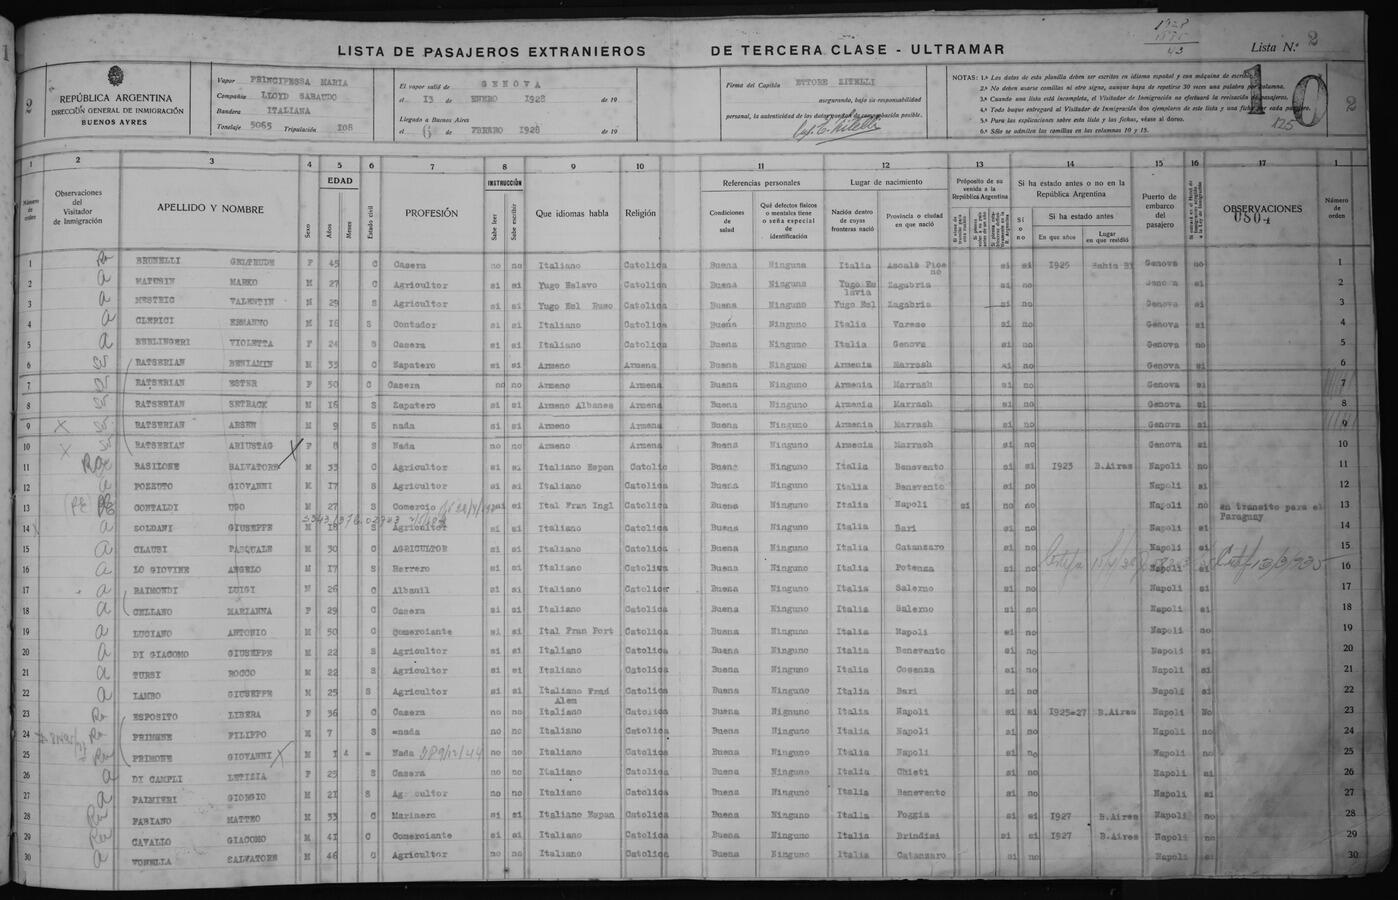 LISTA DE PASAJEROS EXTRANIEROS DE TERCERA CLASE - ULTRAMAR Lista N.º 2
REPÚBLICA ARGENTINA
DIRECCIÓN GENERAL DE INMIGRACIÓN
BUENOS AYRES
Vapor PRINCIPESSA MARIA
Compañía LLOYD SABAUDO
Bandera ITALIANA
Tonelaje 5065 Tripulación 108
El vapor salió de GENOVA
el 13 de ENERO 1928 de 19
Llegado a Buenos Aires
el 6 de FEBRERO 1928 de 19
Firma del Capitán ETTORE ZITELLI
asegurando, bajo su responsabilidad
personal, la autenticidad de los datos que en la comprobación posible.
NOTAS: 1.ª Los datos de esta planilla deben ser escritos en idioma español y con máquina de escribir.
2.ª No deben usarse comillas ni otro signo, aunque haya de repetirse 30 veces una palabra por columna.
3.ª Cuando una lista está incompleta, el Visitador de Inmigración no efectuará la revisación de pasajeros.
4.ª Todo buque entregará al Visitador de Inmigración dos ejemplares de esta lista y una ficha por cada pasajero.
5.ª Para las explicaciones sobre esta lista y las fichas, véase al dorso.
6.ª Sólo se admiten las comillas en las columnas 10 y 15.
10
125
2 2
1 2 3 4 5 6 7 8 9 10 11 12 13 14 15 16 17 1
Número de orden
Observaciones del Visitador de Inmigración
APELLIDO Y NOMBRE
Sexo
EDAD
Años Meses
Estado civil
PROFESIÓN
INSTRUCCIÓN
Sabe leer Sabe escribir
Que idiomas habla
Religión
Referencias personales
Condiciones de salud
Qué defectos físicos o mentales tiene o seña especial de identificación
Lugar de nacimiento
Nación dentro de cuyas fronteras nació
Provincia o ciudad en que nació
Propósito de su venida a la República Argentina
Si ha estado antes o no en la República Argentina
Sí o no
Si ha estado antes
En que años Lugar en que residió
Puerto de embarco del pasajero
OBSERVACIONES
0804
Número de orden
1 BRUNELLI GELTRUDE F 45 C Casera no no Italiano Catolica Buena Ninguna Italia Ascole Pice no si si 1925 Bahia Bl Genova no 1
2 MATUSIN MARKO M 27 C Agricultor si si Yugo Eslavo Catolica Buena Ninguna Yugo Es lavia Zagabria si no Genova si 2
3 MESTRIC VALENTIN M 29 S Agricultor si si Yugo Esl Ruso Catolica Buena Ninguno Yugo Esl Zagabria si no Genova si 3
4 CLERICI ERMANNO M 16 S Contador si si Italiano Catolica Buena Ninguno Italia Varese si no Genova si 4
5 BERLINGERI VIOLETTA F 24 S Casera si si Italiano Catolica Buena Ninguno Italia Genova si no Genova si 5
6 RATSERIAN BENIAMIN M 33 C Zapatero si si Armeno Armena Buena Ninguno Armenia Marrash si no Genova si 6
7 RATSERIAN ESTER F 50 C Casera no no Armeno Armena Buena Ninguno Armenia Marrash si no Genova si 7
8 RATSERIAN SETRACK M 16 S Zapatero si si Armeno Albanes Armena Buena Ninguno Armenia Marrash si no Genova si 8
9 RATSERIAN ARSEN M 9 S nada si si Armeno Armena Buena Ninguno Armenia Marrash si no Genova si 9
10 RATSERIAN ARIUSTAG F 8 S Nada no no Armeno Armena Buena Ninguno Armenia Marrash si no Genova si 10
11 BASILONE SALVATORE M 33 C Agricultor si si Italiano Espan Catolic Buena Ninguno Italia Benevento si si 1923 B.Aires Napoli no 11
12 POZZUTO GIOVANNI M 17 S Agricultor si si Italiano Catolica Buena Ninguno Italia Benevento si no Napoli si 12
13 CONTALDI UGO M 27 C Comercio si si Ital Fran Ingl Catolica Buena Ninguno Italia Napoli si no no Napoli no en transito para el Paraguay 13
14 SOLDANI GIUSEPPE M 18 S Agricultor si si Italiano Catolica Buena Ninguno Italia Bari si no Napoli si 14
15 CLAUSI PASQUALE M 30 C AGRICULTOR si si Italiano Catolica Buena Ninguno Italia Catanzaro si no Napoli si 15
16 LO GIOVINE ANGELO M 17 S Herrero si si Italiano Catolica Buena Ninguno Italia Potenza si no Napoli 16
17 RAIMONDI LUIGI M 26 C Albanil si si Italiano Catolica Buena Ninguno Italia Salerno si no Napoli si 17
18 CELLANO MARIANNA F 29 C Casera si si Italiano Catolica Buena Ninguno Italia Salerno si no Napoli si 18
19 LUCIANO ANTONIO M 50 C Comerciante si si Ital Fran Port Catolica Buena Ninguno Italia Napoli si no Napoli no 19
20 DI GIACOMO GIUSEPPE M 22 S Agricultor si si Italiano Catolica Buena Ninguno Italia Benevento si no Napoli si 20
21 TURSI ROCCO M 22 S Agricultor si si Italiano Catolica Buena Ninguno Italia Cosenza si no Napoli si 21
22 LAMBO GIUSEPPE M 25 S Agricultor si si Italiano Fran Alem Catolica Buena Ninguno Italia Bari si no Napoli si 22
23 ESPOSITO LIBERA F 36 C Casera no no Italiano Catolica Buena Nignuno Italia Napoli si si 1925=27 B.Aires Napoli No 23
24 PRIMONE FILIPPO M 7 S =nada no no Italiano Catolica Buena Ninguno Italia Napoli si no Napoli si 24
25 PRIMONE GIOVANNI M 1 4 = Nada 289/12/44 no no Italiano Catolica Buena Ninguno Italia Napoli si no Napoli si 25
26 DI CAMPLI LETIZIA F 25 S Casera no no Italiano Catolica Buena Ninguno Italia Chieti si no Napoli si 26
27 PALMIERI GIORGIO M 21 S Ag cultor no no Italiano Catolica Buena Ninguno Italia Benevento si no Napoli si 27
28 FABIANO MATTEO M 33 C Marinero si si Italiano Espan Catolica Buena Ninguno Italia Foggia si si 1927 B.Aires Napoli no 28
29 CAVALLO GIACOMO M 41 C Comerciante si si Italiano Catolica Buena Ninguno Italia Brindisi si si 1927 B.Aires Napoli no 29
30 VONELLA SALVATORE M 46 C Agricultor si si Italiano Catolica Buena Ninguno Italia Catanzaro si no Napoli si 30